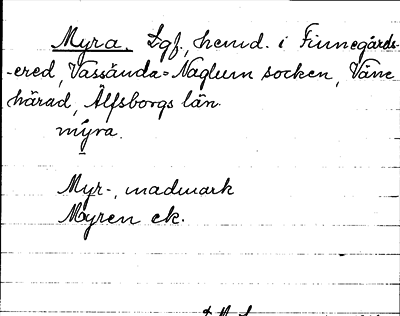 Myra. Lgf., hemd. i Finnegårds-
-ered, Vassända-Naglum socken, Väne
härad, Älfsborgs län.
mýra.
Myr-, madmark
Myren ek.